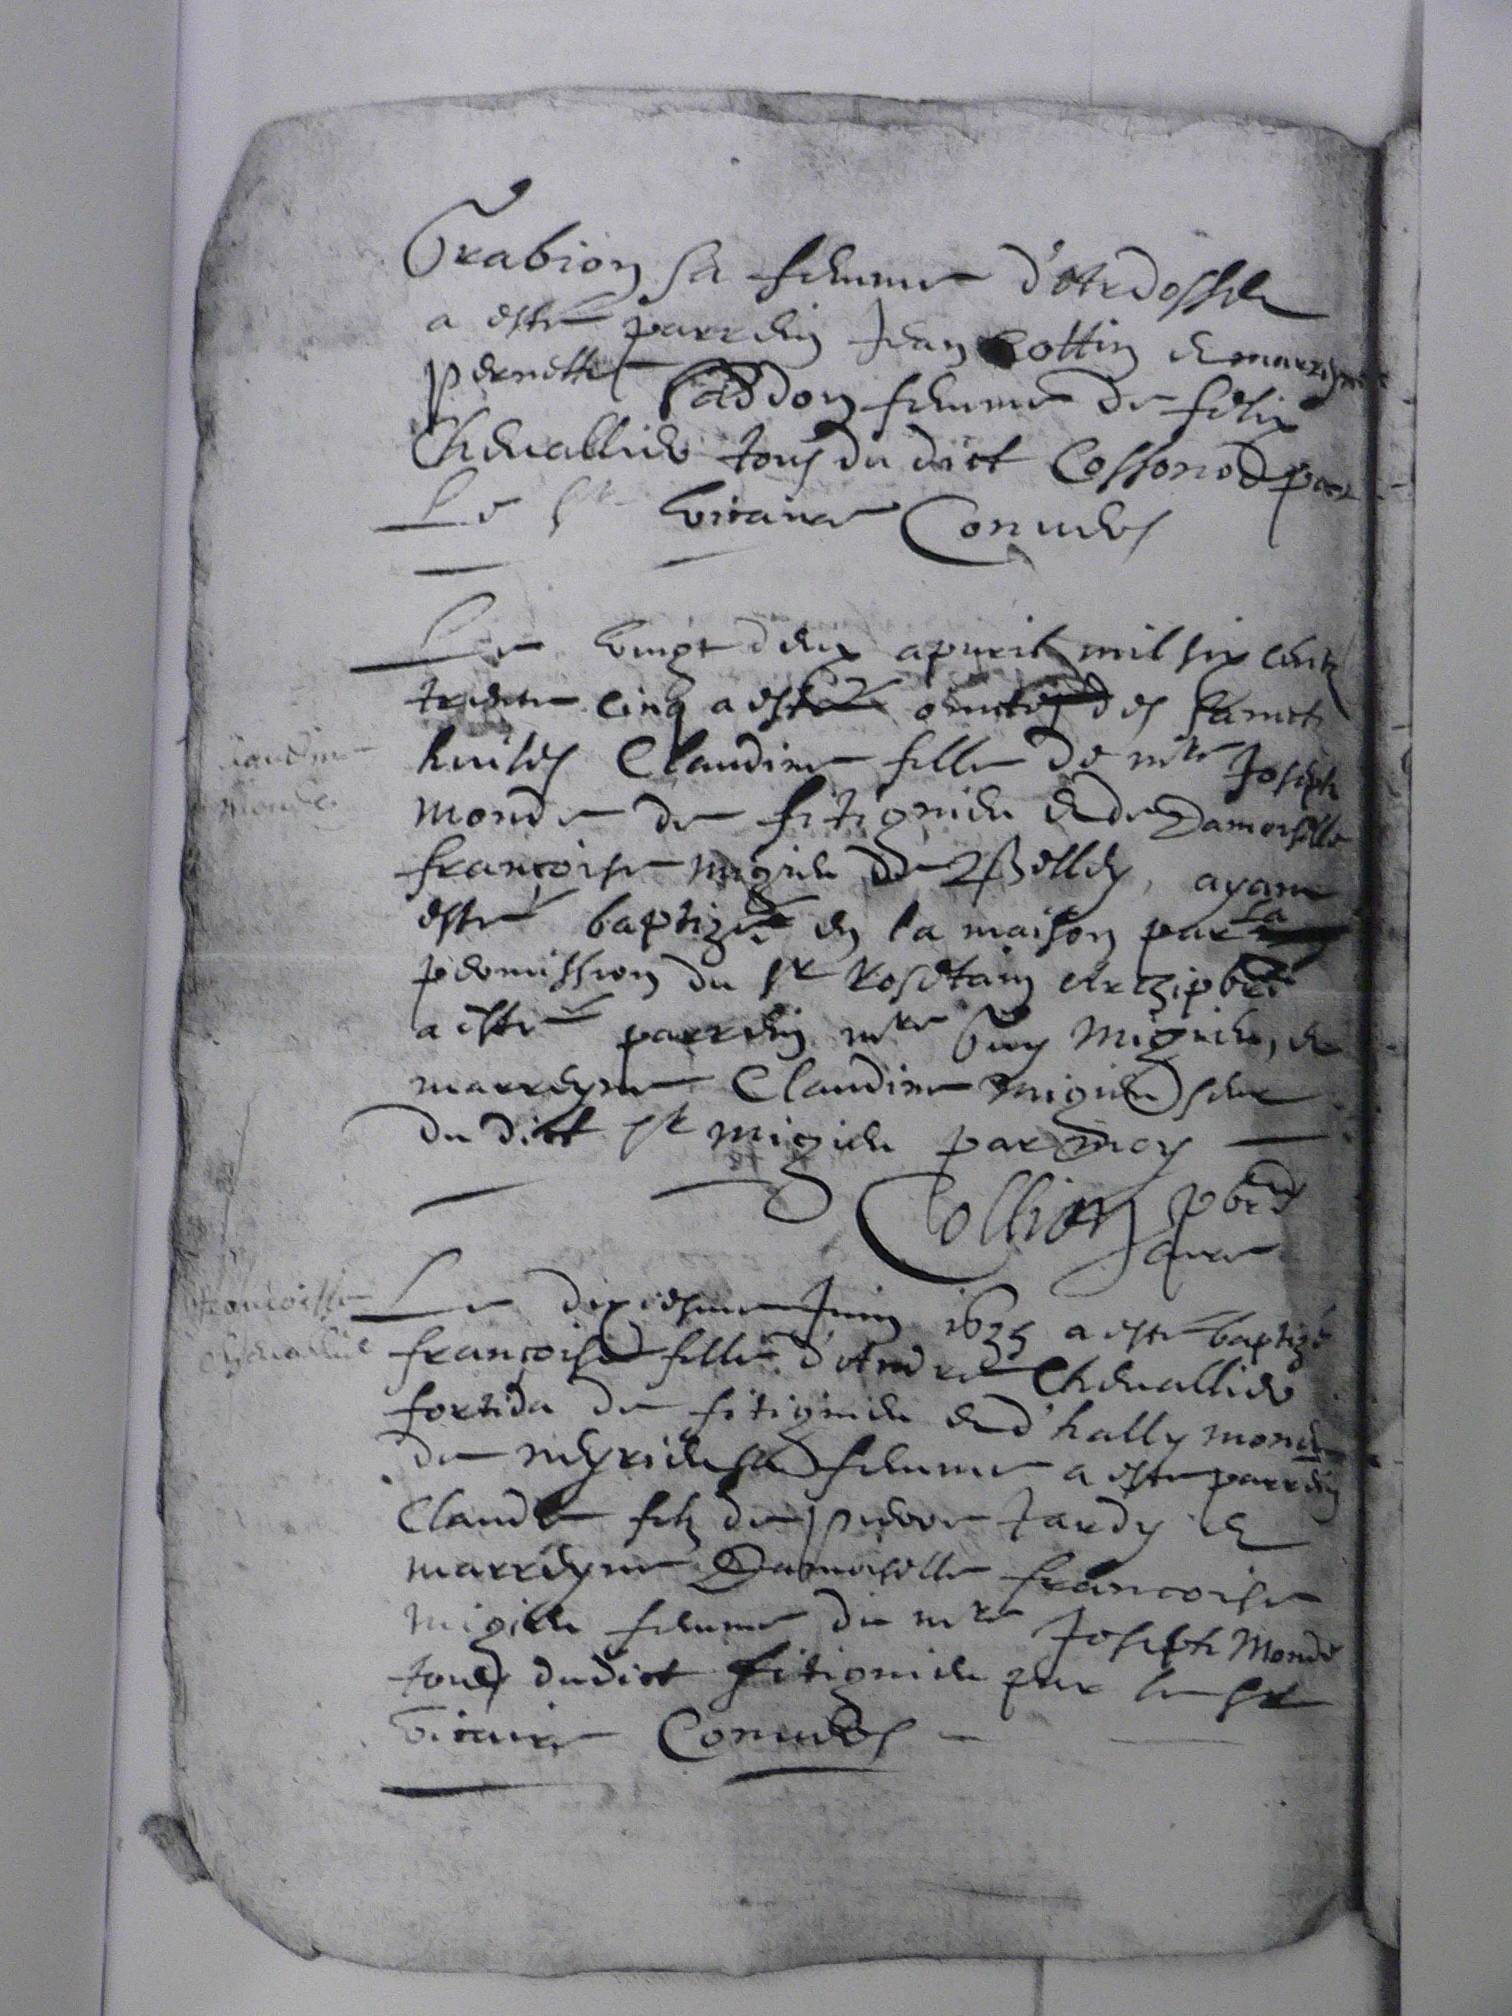 Grabion sa femme d'Ardosset
a esté parrein Jean Cottin et marreyne
pernette Paddon femme de felix
Chevallier tous du dict Cossonod par
Le Sr vicaire Convers
Le vingt deux apvril mil six centz
trente cinq a esté oincte des sainctz
huiles Claudine fille de mre Joseph
monde de fitignieu et de Damoiselle
françoise migieu de Belley, ayant
esté baptizée en la maison par la
permission du sr Rosetain Archipbre
a esté parrein mre Guy Migieu, et
marreyne Claudine migieu seur
du dict sr migieu par moy
Collion pbre
Claudine
monde
Le dixiesme Juin 1635 a esté baptizé
françoise fille d'André Chevallier
de fitignieu et d'hally monde
de meyrieu sa femme a esté parrein
Claude filz de pierre tardy et
marreyne Damoiselle francoise
migieu femme de mre Joseph Monde
tous dudict fitignieu par le sr
vicaire Convers
francoise
chevallier